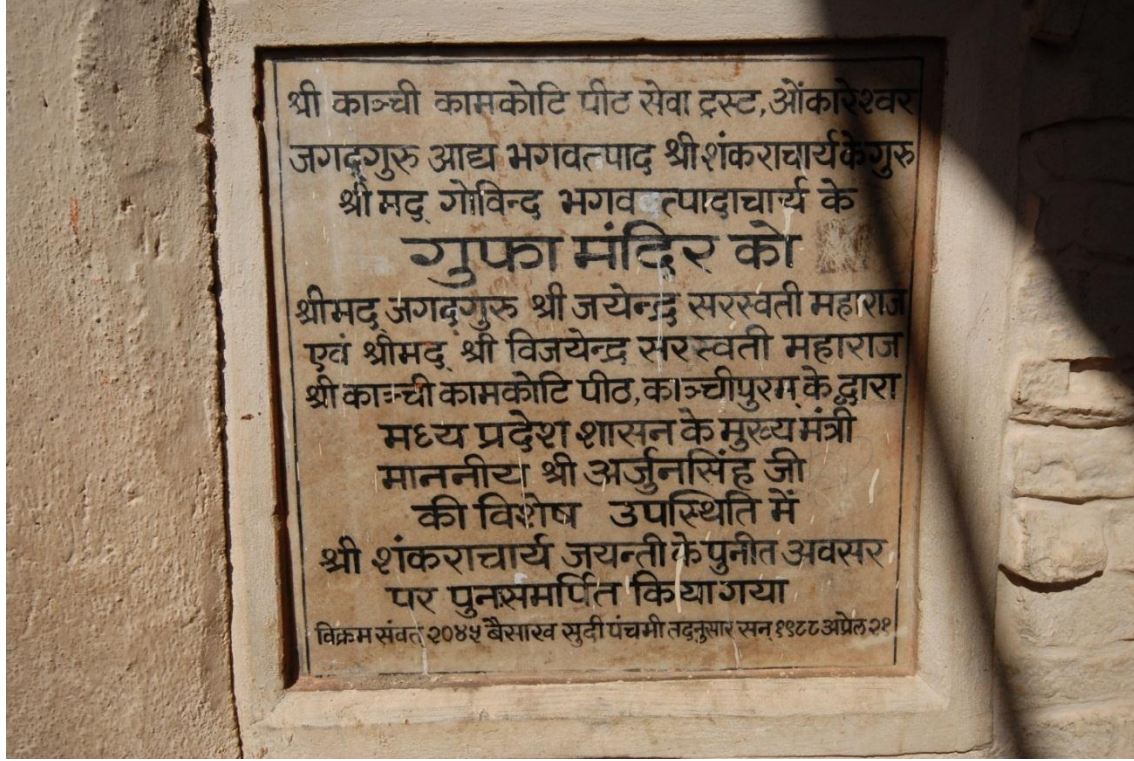 श्री काञ्ची कामकोटि पीट सेवा ट्रस्ट, ओंकारेश्वर
जगद्गुरु आद्य भगवत्पाद श्री शंकराचार्य के गुरु
श्रीमद् गोविन्द भगवत्पादाचार्य के
गुफा मंदिर को
श्रीमद् जगद्गुरु श्री जयेन्द्र सरस्वती महाराज
एवं श्रीमद् श्री विजयेन्द्र सरस्वती महाराज
श्री काञ्ची कामकोटि पीठ, काञ्चीपुरम् के द्वारा
मध्य प्रदेश शासन के मुख्य मंत्री
माननीय श्री अर्जुनसिंह जी
की विशेष उपस्थिति में
श्री शंकराचार्य जयन्ती के पुनीत अवसर
पर पुनःसमर्पित किया गया
विक्रम संवत् २०४५ बैसाख सुदी पंचमी तद्नुसार सन् १९८८ अप्रेल २१